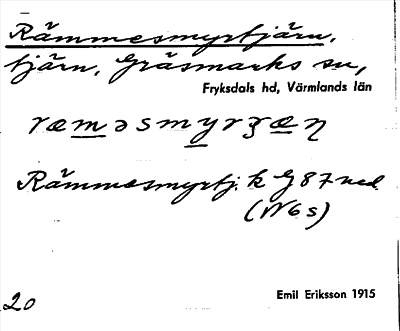 Rämmesmyrtjärn,
tjärn, Gräsmarks sn,
Fryksdals hd, Värmlands län
Rämmesmyrtj. k G 87 ned.
(N6s)
20
Emil Eriksson 1915